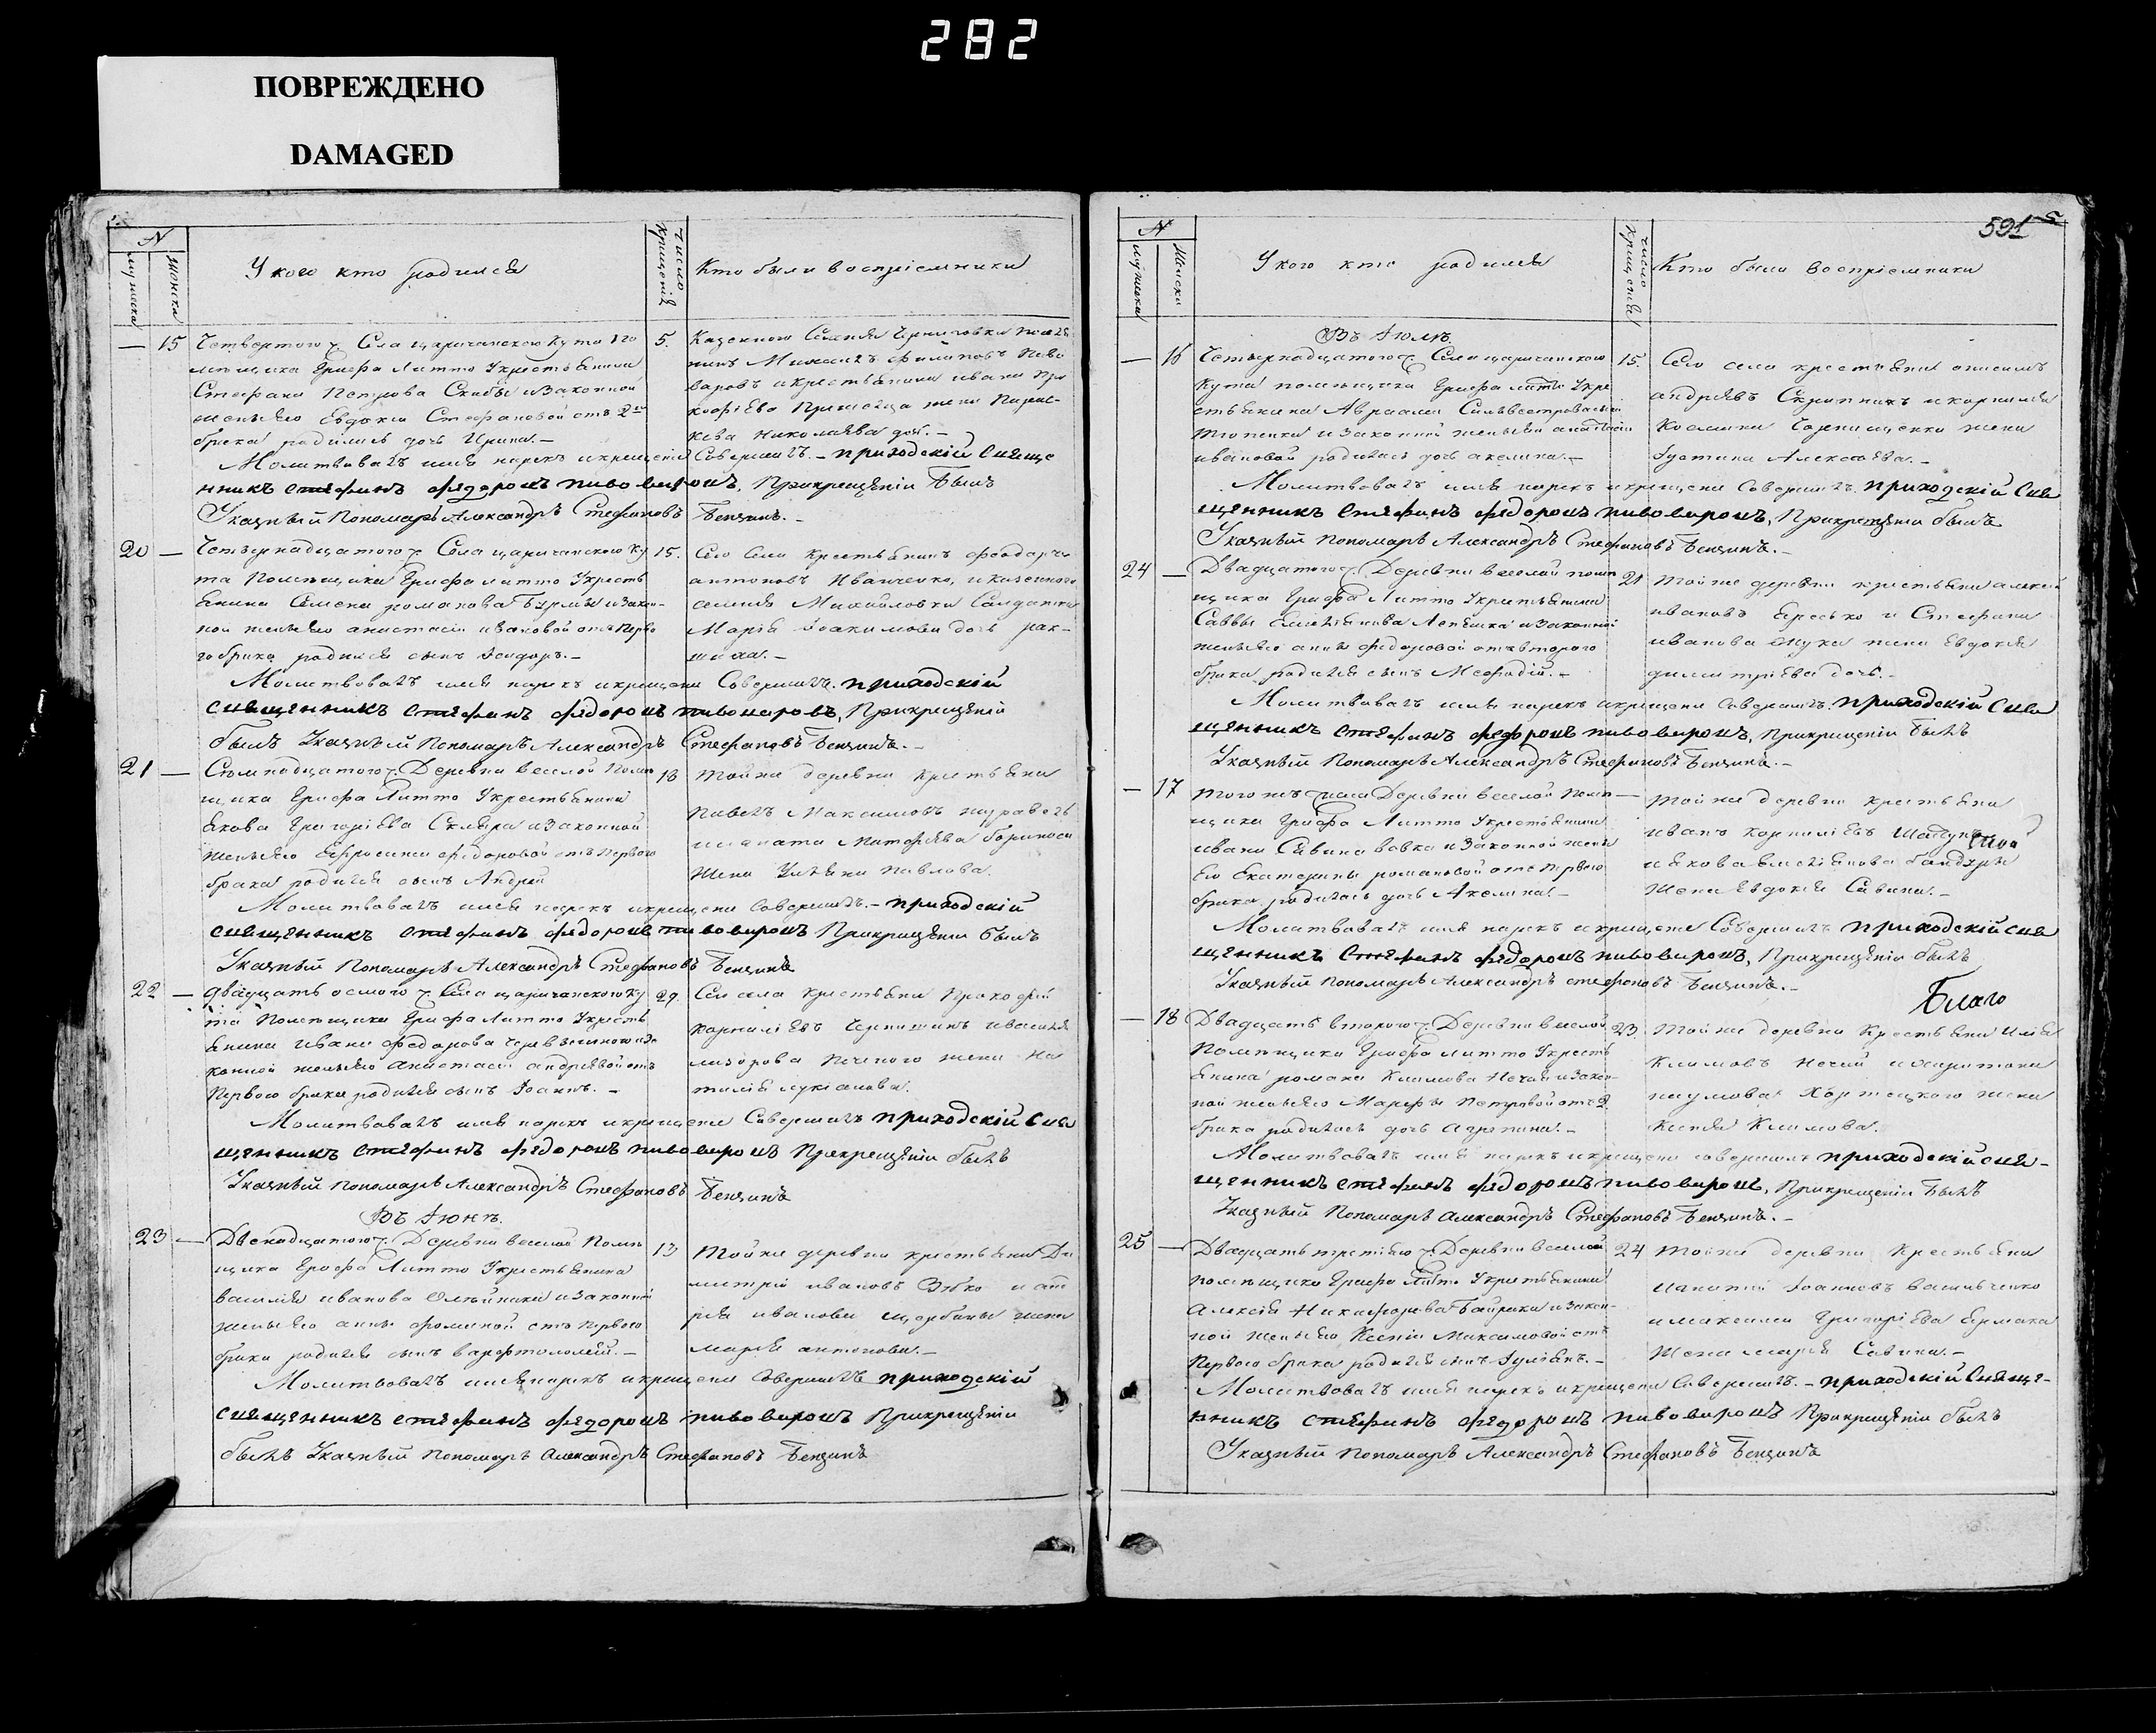 282
ПОВРЕЖДЕНО
DAMAGED
N
мужеска
женска
У кого кто родился
число крещенія
Кто были воспріемники
— 15 Четвертого ч. Села царичанского Кута по
мѣщика Графа Литто Укрестьянина
Стефана Петрова Скибы изаконной
жены его Евдокіи Стефановой отъ 2го
брака родилась дочь Ирина. —
5. Казенного Селенія
Михаилъ Филиповъ Пиво
варовъ икрестьянина ивана Про
кофіева жена Параске
кева Николаева доч. —
Молитвовалъ имя нарекъ икрещеніе Совершилъ. — приходскій Свяще
нникъ Стефанъ Федоровъ пивоваровъ, Прикрещеніи Былъ
Указный Пономарь Александръ Стефановъ Бенцинъ. —
20 — Четвернадцатого ч. Села царичанского Ку
та Помѣщика Графа Литто Укресть
янина Семена романова изакон-
ной жены его анастасіи ивановой отъ Перво
го брака родился сынъ Исидоръ. —
15. Сего Села Крестьянинъ
антоновъ Иванченко, иказенного
селенія Михайловки Салдатка
Марія Іоакимова дочь
Молитвовалъ имя нарекъ икрещеніе Совершилъ. приходскій
священникъ Стефанъ Федоровъ пивоваровъ, Прикрещеніи
былъ Указный Пономарь Александръ Стефановъ Бенцинъ. —
21 — Семнадцатого ч. Деревни веселой Помѣ
щика Графа Литто Укрестьянина
Якова Григоріева Скляра изаконной
жены его Ефросиніи федоровой отъ Первого
брака родился сынъ Андрей
18 тойже деревни крестьянинъ
Павелъ Максимовъ
игната
жена Уліяна Павлова.
Молитвовалъ имя нарекъ икрещеніе Совершилъ. — приходскій
священникъ Стефанъ Федоровъ пивоваровъ Прикрещеніи былъ
Указный Пономарь Александръ Стефановъ Бенцинъ
22 — Двадцать осмого ч. Села царичанского Ку
та Помѣщика Графа Литто Укресть
янина Ивана федорова изз
конной жены его анастасіи андріевой отъ
Первого брака родился сынъ Іоаннъ. —
29. Сего села Крестьянинъ Прокофій
Корниліевъ
жена На
талія лукіанова.
Молитвовалъ имя нарекъ икрещеніе Совершилъ приходскій Свя
щенникъ Стефанъ Федоровъ пивоваровъ Прикрещеніи былъ
Указный Пономарь Александръ Стефановъ Бенцинъ
Въ Іюнѣ.
23 — Двенадцатого ч. Деревни веселой Помѣ
щика Графа Литто Укрестьянина
василія иванова Олѣйника изаконной
жены его анны фоминой отъ Первого
брака родился сынъ варфоломей. —
13 Тойже деревни крестьянинъ Ди
митрій ивановъ Зубко
иванова щербины жена
марія антонова. —
Молитвовалъ имя нарекъ икрещеніе Совершилъ приходскій
священникъ Стефанъ Федоровъ пивоваровъ Прикрещеніи
былъ Указный Пономарь Александръ Стефановъ Бенцинъ
591
N
мужеска
женска
У кого кто родился
число крещенія
Кто были воспріемники
Въ Іюлѣ.
— 16 Четвернадцатого ч. Села царичанского
Кута помѣщика Графа литто Укре
стьянина Авраама Сильвестрова
изаконной жены его анастасіи
ивановой родилась дочь акелина. —
15. Сего села крестьянинъ
андріевъ Скрипникъ икорнилія
жена
Іустина Алексѣева. —
Молитвовалъ имя нарекъ икрещеніе Совершилъ. приходскій Свя
щенникъ Стефанъ Федоровъ пивоваровъ, Прикрещеніи былъ
Указный Пономарь Александръ Стефановъ Бенцинъ. —
24 — Двадцатого ч. Деревни веселой помѣ
щика Графа Литто Укрестьянина
Саввы изаконной
жены его анны федоровой отъ второго
брака родился сынъ Мефодій. —
21 тойже деревни крестьянинъ алексей
ивановъ Ересько и Стефана
иванова жена Евдокія
димитріева дочь. —
Молитвовалъ имя нарекъ икрещеніе Совершилъ. приходскій Свя
щенникъ Стефанъ Федоровъ пивоваровъ, Прикрещеніи былъ
Указный Пономарь Александръ Стефановъ Бенцинъ. —
— 17 Тогожъ числа Деревни веселой Помѣ
щика Графа Литто Укрестьянина
ивана Савина вовка изаконной жены
его Екатерины романовой отъ Первого
брака родилась дочь Акелина. —
— тойже деревни крестьянинъ
иванъ Корниліевъ
иякова Бандуры
жена Евдокія Савина. —
Молитвовалъ имя нарекъ икрещеніе Совершилъ приходскій Свя
щенникъ Стефанъ Федоровъ пивоваровъ, Прикрещеніи былъ
Указный Пономарь Александръ Стефановъ Бенцинъ. —
Благо
— 18 Двадцать второго ч. Деревни веселой
Помѣщика Графа Литто Укресть
янина романа Климова Нечая изакон-
ной жены его Марфы Петровой отъ 2
брака родилась дочь Агрепина. —
23. тойже деревни Крестьянинъ
Климовъ Нечай ихаритона
наумова Хортецкого жена
Ксенія Климова.
Молитвовалъ имя нарекъ икрещеніе совершилъ приходскій свя-
щенникъ Стефанъ Федоровъ пивоваровъ, Прикрещеніи Былъ
Указный Пономарь Александръ Стефановъ Бенцинъ. —
25 — Двадцать третьяго ч. Деревни веселой
помѣщика Графа Литто Укрестьянина
Алексія Никифорова Байрака изакон-
ной жены его Ксеніи Максимовой отъ
Первого брака родился сынъ Іуліянъ. —
24 тойже деревни Крестьянинъ
игнатій Іоанновъ васильченко
имаксима Григоріева Ермака
жена марія Савина. —
Молитвовалъ имя нарекъ икрещеніе Совершилъ. — приходскій Свяще-
нникъ Стефанъ Федоровъ пивоваровъ Прикрещеніи былъ
Указный Пономарь Александръ Стефановъ Бенцинъ